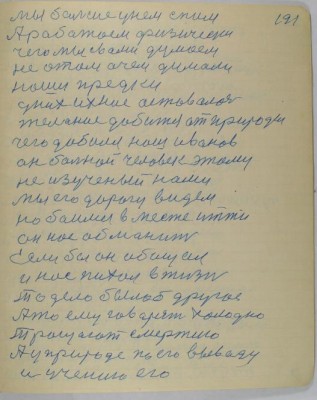 191
мы болшие унем спим
Арабатаем физичиски
чего мы свами думаем
не отом очем думали
наши предки
уних ихнае аставалоя
желание добится от природы
чего добился наш иванов
он болной человек этому
не изученый нами
мы его дорогу видем
но баимся вместе итти
он нас обманиту
Если бы он обещал
и нас пихал в тизу
То дело былоб другое
А то ему говарят холодно
Трощат смертию
А уприроде по его вываду
и учению его